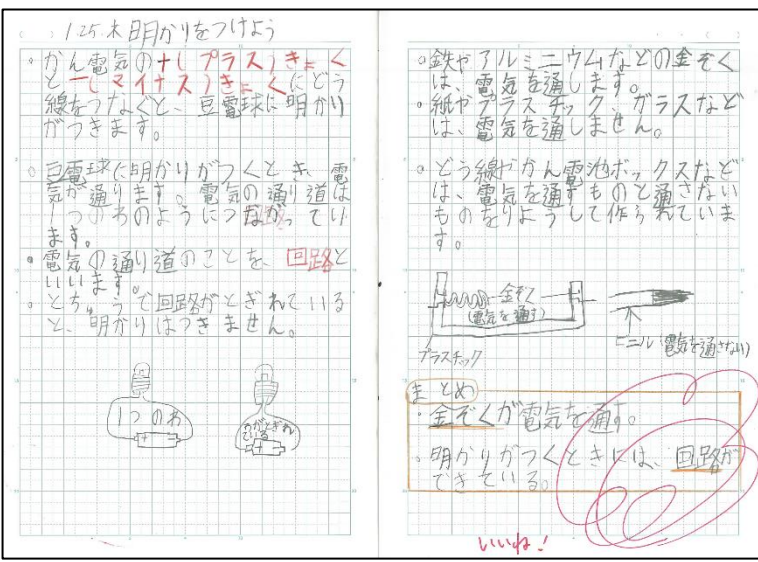 1.25.木 明かりをつけよう
かん電気の+しプラス)きょく
と-しマイナス)きょくにどう
線をつなぐと、豆電球に明かり
がつきます。
豆電球に明かりがつくとき、電
気が通ります。電気の通り道は
一つのわのようにつながってい
ます。
電気の通り道のことを、回路と
いいます。
とちゅうで回路がとぎれている
と、明かりはつきません。
1つのわ
わがとぎれ
ている
鉄やアルミニウムなどの金ぞく
は、電気を通します。
紙やプラスチック、ガラスなど
は、電気を通しません。
どう線やかん電池ボックスなど
は、電気を通すものと通さない
ものをりようして作られていま
す。
金ぞく
(電気を通す)
プラスチック
ビニル(電気を通さない)
まとめ
・金ぞくが電気を通す。
・明かりがつくときには、回路が
できている。
いいね!